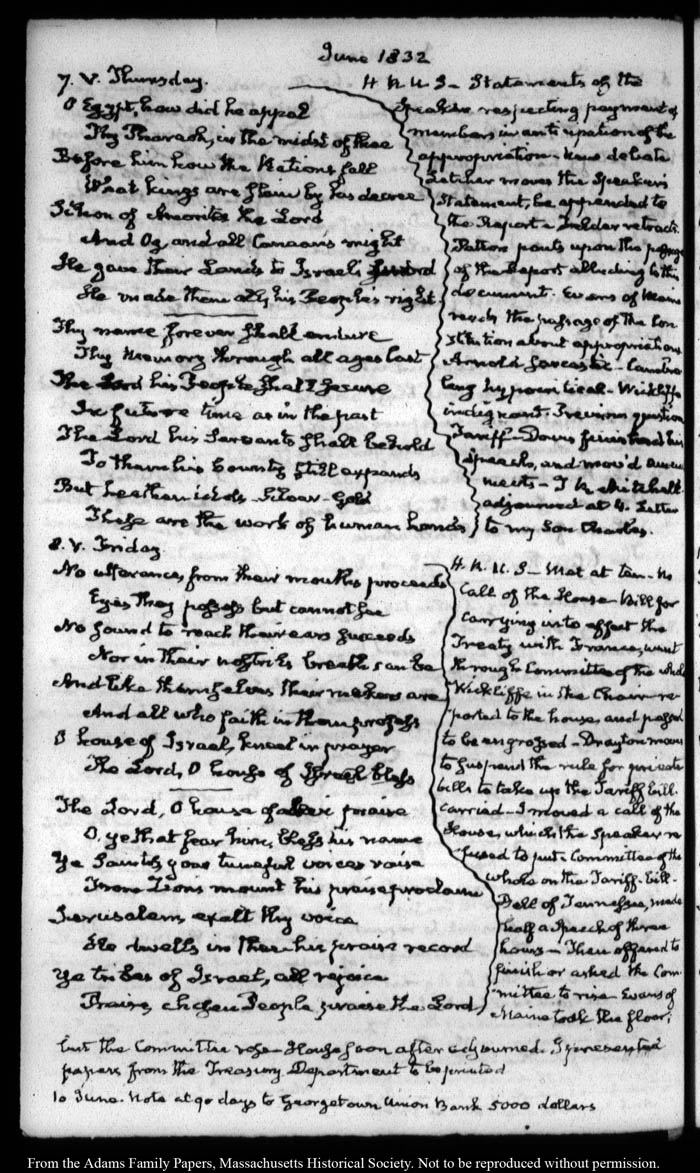 June 1832
7. V. Thursday.
O Egypt, how did he appal
Thy Pharaoh, in the midst of thee
Before him how the Nations fall
What kings are slain by his decree
Sihon of Amorites the Lord
And Og, and all Canaan's might
He gave their Lands to Israel's sword
He made them all, his Peoples right
Thy name forever shall endure
Thy memory through all ages last
The Lord his People shall secure
In future time as in the past
The Lord his Servants shall behold
To them his bounty still expands
But heathen idols Silver-Gold
These are the work of human hands
H. R. U. S - Statements of the
Speaker respecting payment of
members in anticipation of the
appropriation - debate
Letcher moves the Speaker's
Statement, be appended to
the Report - retracts.
Patton pounts upon the passage
of the Report alluding to this
document. Evans of Maine
reads the passage of the Con
stitution about appropriations
Arnold sarcastic - Cambre
leng hypocritical - Wickliffe
indignant. Previous question
Tariff - Davis finished his
speech, and mov'd amend
ments - T. R. Mitchell
adjourned at 4. Letter
to my Son Charles.
8. V. Friday.
No utterance, from their mouths proceeds
Eyes they possess but cannot see
No sound to reach their ears succeeds
Nor in their nostrils breath can be
And like themselves their makers are
And all who faith in them profess
O house of Israel, kneel in prayer
The Lord, O house of Israel bless
The Lord, O house of Levi praise
O, ye that fear him, bless his name
Ye Saints, your tuneful voices raise
From Zion's mount his praise proclaim
Jerusalem, exalt thy voice
He dwells in thee his praise record
Ye tribes of Israel, all rejoice
Praise, chosen People praise the Lord
H. R. U. S - Met at ten - No
Call of the House - Bill for
carrying into effect the
Treaty with France, went
through Committee of the whole
Wickliffe in the Chair - re-
ported to the house, and passed
to be engrossed - Drayton moves
to suspend the rule for private
bills to take up the Tariff bill.
carried - I moved a call of the
House, which the Speaker re
fused to put. Committee of the
whole on the Tariff-bill -
Bell of Tennessee, made
half a speech of three
hours - Then offered to
finish or asked the Com-
mittee to rise - Evans of
Maine took the floor,
but the Committee rose - House soon after adjourned. I presented
papers from the Treasury Department to be printed
10 June. Note at 90 days to Georgetown Union Bank 5000 dollars
From the Adams Family Papers, Massachusetts Historical Society. Not to be reproduced without permission.